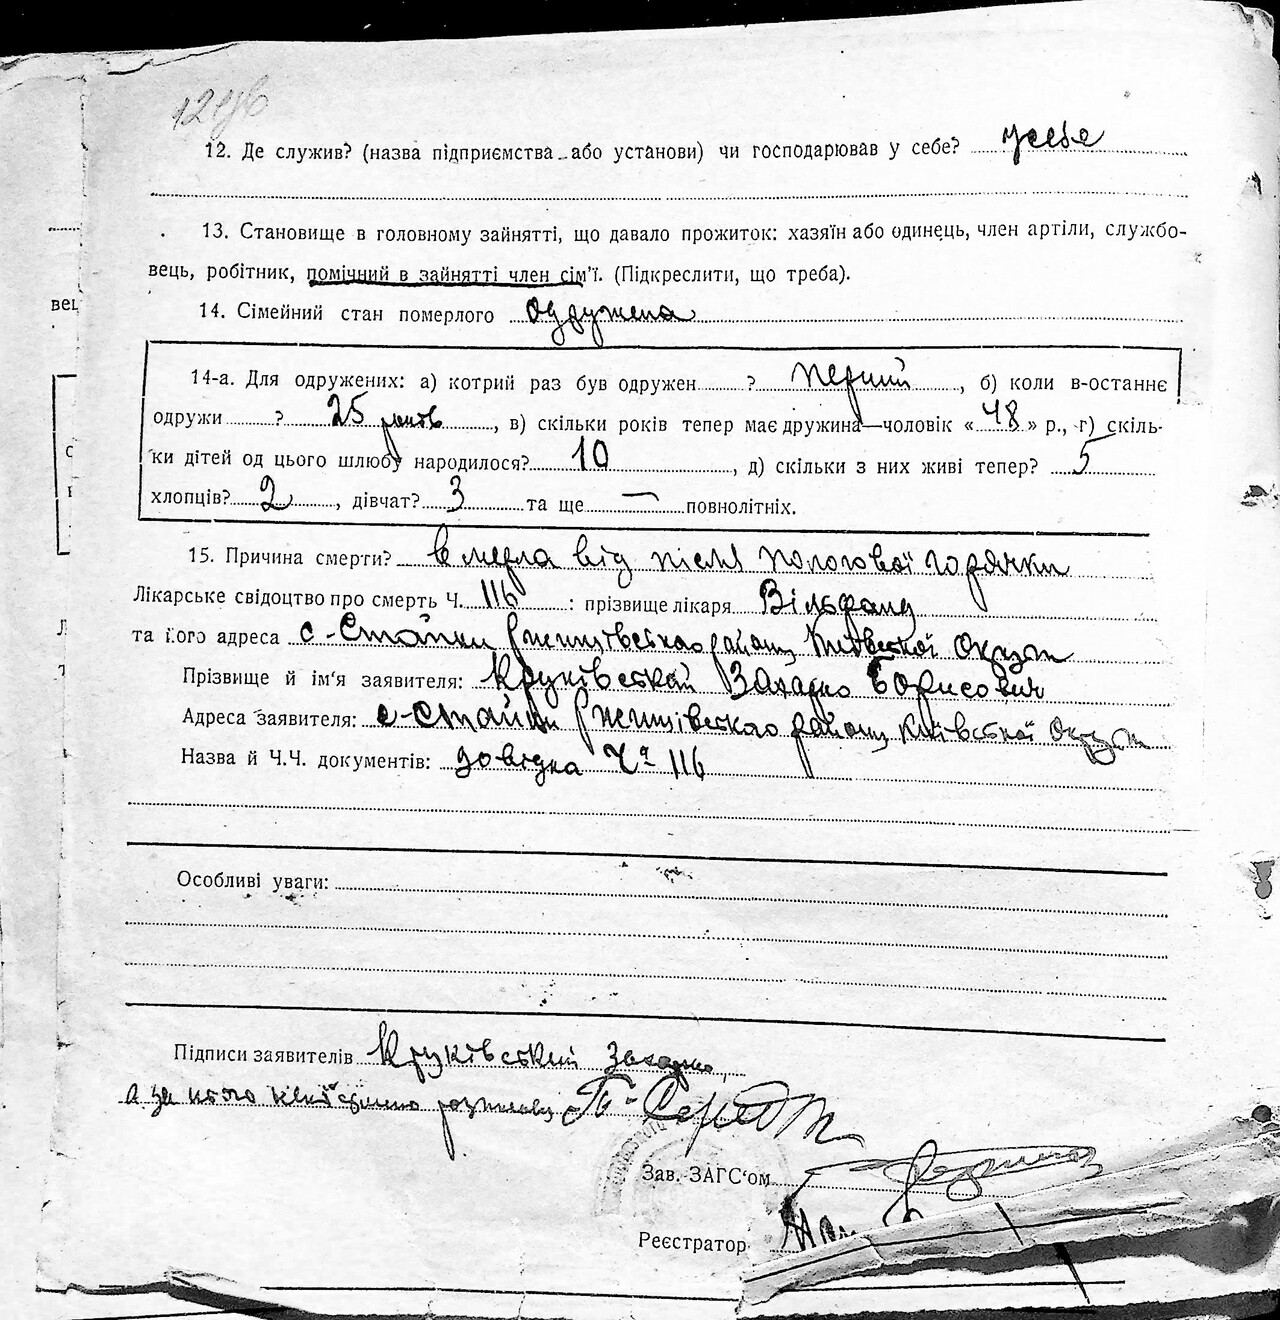 12. Де служив? (назва підприємства або установи) чи господарював у себе? у себе
13. Становище в головному зайнятті, що давало прожиток: хазяїн або одинець, член артіли, службо-
вець, робітник, помічний в зайнятті член сім'ї. (Підкреслити, що треба).
14. Сімейний стан померлого одружена
14-а. Для одружених: а) котрий раз був одружен ? перший, б) коли в-останнє
одружи ? 25 літ, в) скільки років тепер має дружина—чоловік «48» р., г) скіль-
ки дітей од цього шлюбу народилося? 10, д) скільки з них живі тепер? 5
хлопців? 2, дівчат? 3 та ще — повнолітніх.
15. Причина смерти? вмерла від після пологової горячки
Лікарське свідоцтво про смерть Ч. 116 : прізвище лікаря
та його адреса с-Стайки Ржищівського району Київської Округи
Прізвище й ім'я заявителя: Круківський Захарко Борисович
Адреса заявителя: с-Стайки Ржищівського району Київської Округи
Назва й Ч.Ч. документів: довідка Ч 116
Особливі уваги:
Підписи заявителів Круківський Захарко
а за його
Зав. ЗАГС'ом
Реєстратор